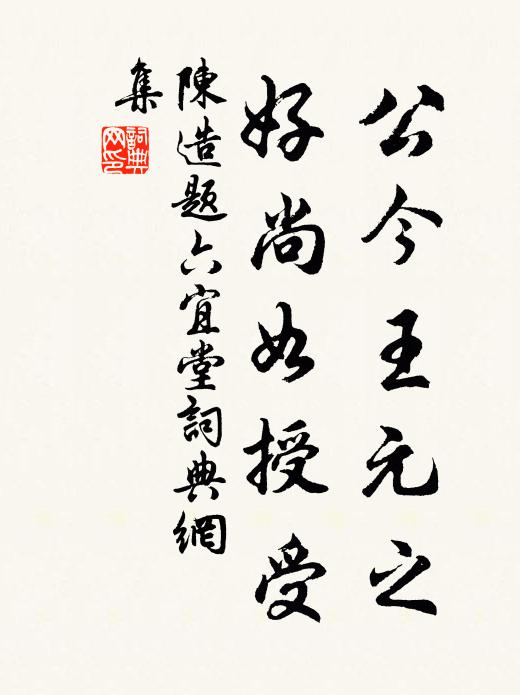 公今王元之
好尚如授受
陳造題六宜堂詞典網
集
詞典網印